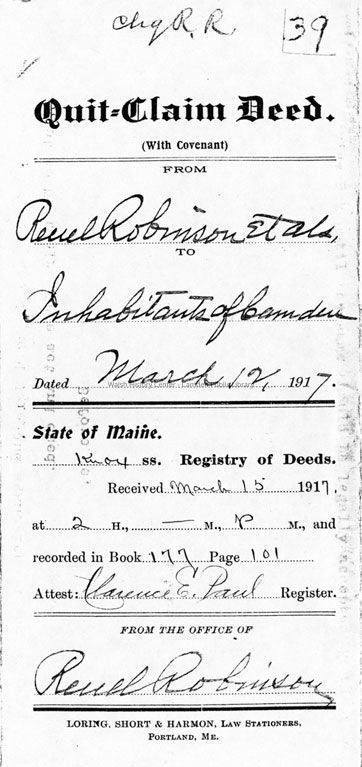 chg R. R. 39
Quit-Claim Deed.
(With Covenant)
FROM
Reuel Robinson et als,
TO
Inhabitants of Camden
Dated March 12, 1917.
Walsh History Center - Camden Public Library
State of Maine.
Knox ss. Registry of Deeds.
Received March 15 1917,
at 2 H., — M., P M., and
recorded in Book 177 Page 101
Attest: Clarence E. Paul Register.
FROM THE OFFICE OF
Reuel Robinson
LORING, SHORT & HARMON, LAW STATIONERS,
PORTLAND, ME.